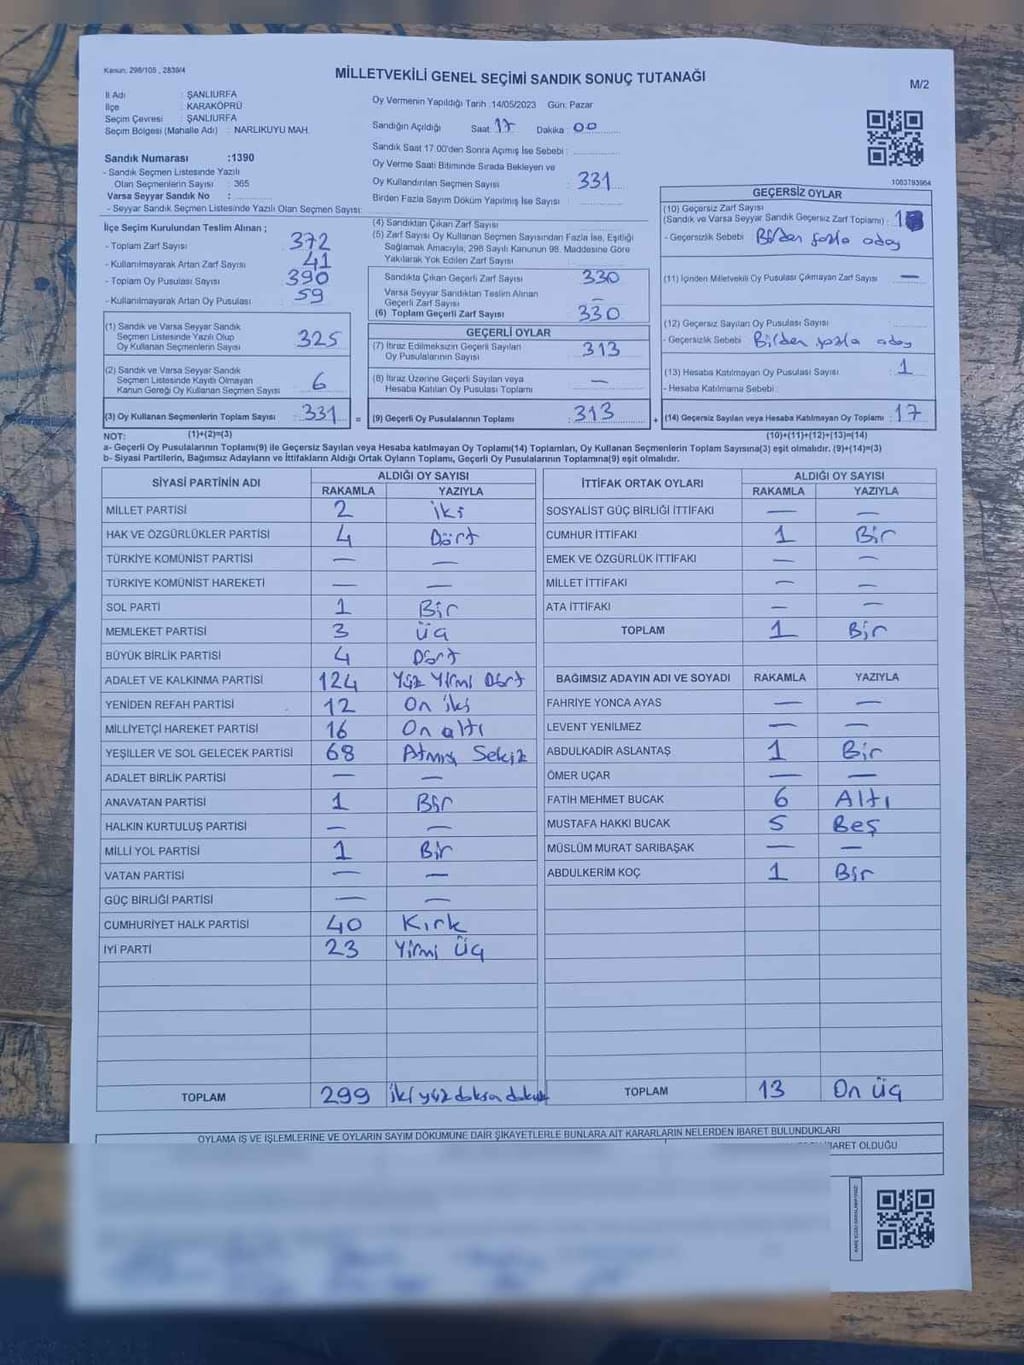 Kanun: 298/105 , 2839/4
MİLLETVEKİLİ GENEL SEÇİMİ SANDIK SONUÇ TUTANAĞI
M/2
İl Adı : ŞANLIURFA
İlçe : KARAKÖPRÜ
Seçim Çevresi : ŞANLIURFA
Seçim Bölgesi (Mahalle Adı) : NARLIKUYU MAH.
Sandık Numarası :1390
- Sandık Seçmen Listesinde Yazılı
Olan Seçmenlerin Sayısı : 365
Varsa Seyyar Sandık No :
- Seyyar Sandık Seçmen Listesinde Yazılı Olan Seçmen Sayısı:
Oy Vermenin Yapıldığı Tarih :14/05/2023 Gün: Pazar
Sandığın Açıldığı Saat 17 Dakika 00
Sandık Saat 17.00'den Sonra Açımış İse Sebebi :
Oy Verme Saati Bitiminde Sırada Bekleyen ve
Oy Kullandırılan Seçmen Sayısı : 331
Birden Fazla Sayım Döküm Yapılmış İse Sayısı :
1083793964
İlçe Seçim Kurulundan Teslim Alınan ;
- Toplam Zarf Sayısı : 372
- Kullanılmayarak Artan Zarf Sayısı : 41
- Toplam Oy Pusulası Sayısı : 390
- Kullanılmayarak Artan Oy Pusulası : 59
(1) Sandık ve Varsa Seyyar Sandık
Seçmen Listesinde Yazılı Olup
Oy Kullanan Seçmenlerin Sayısı : 325
(2) Sandık ve Varsa Seyyar Sandık
Seçmen Listesinde Kayıtlı Olmayan
Kanun Gereği Oy Kullanan Seçmen Sayısı : 6
(3) Oy Kullanan Seçmenlerin Toplam Sayısı : 331 =
(4) Sandıktan Çıkan Zarf Sayısı :
(5) Zarf Sayısı Oy Kullanan Seçmen Sayısından Fazla İse, Eşitliği
Sağlamak Amacıyla, 298 Sayılı Kanunun 98. Maddesine Göre
Yakılarak Yok Edilen Zarf Sayısı :
Sandıkta Çıkan Geçerli Zarf Sayısı : 330
Varsa Seyyar Sandıktan Teslim Alınan
Geçerli Zarf Sayısı : —
(6) Toplam Geçerli Zarf Sayısı : 330
GEÇERLİ OYLAR
(7) İtiraz Edilmeksizin Geçerli Sayılan
Oy Pusulalarının Sayısı : 313
(8) İtiraz Üzerine Geçerli Sayılan veya
Hesaba Katılan Oy Pusulası Toplamı : —
(9) Geçerli Oy Pusulalarının Toplamı : 313 +
GEÇERSİZ OYLAR
(10) Geçersiz Zarf Sayısı
(Sandık ve Varsa Seyyar Sandık Geçersiz Zarf Toplamı) : 1
- Geçersizlik Sebebi : Birden fazla aday
(11) İçinden Milletvekili Oy Pusulası Çıkmayan Zarf Sayısı : —
(12) Geçersiz Sayılan Oy Pusulası Sayısı :
- Geçersizlik Sebebi : Birden fazla aday
(13) Hesaba Katılmayan Oy Pusulası Sayısı : 1
- Hesaba Katılmama Sebebi :
(14) Geçersiz Sayılan veya Hesaba Katılmayan Oy Toplamı : 17
NOT: (1)+(2)=(3)
(10)+(11)+(12)+(13)=(14)
a- Geçerli Oy Pusulalarının Toplamı(9) ile Geçersiz Sayılan veya Hesaba katılmayan Oy Toplamı(14) Toplamları, Oy Kullanan Seçmenlerin Toplam Sayısına(3) eşit olmalıdır. (9)+(14)=(3)
b- Siyasi Partilerin, Bağımsız Adayların ve İttifakların Aldığı Ortak Oyların Toplamı, Geçerli Oy Pusulalarının Toplamına(9) eşit olmalıdır.
SİYASİ PARTİNİN ADI ALDIĞI OY SAYISI
RAKAMLA YAZIYLA
MİLLET PARTİSİ 2 iki
HAK VE ÖZGÜRLÜKLER PARTİSİ 4 Dört
TÜRKİYE KOMÜNİST PARTİSİ — —
TÜRKİYE KOMÜNİST HAREKETİ — —
SOL PARTİ 1 Bir
MEMLEKET PARTİSİ 3 üç
BÜYÜK BİRLİK PARTİSİ 4 Dört
ADALET VE KALKINMA PARTİSİ 124 Yüz Yirmi Dört
YENİDEN REFAH PARTİSİ 12 On iki
MİLLİYETÇİ HAREKET PARTİSİ 16 On altı
YEŞİLLER VE SOL GELECEK PARTİSİ 68 Atmış Sekiz
ADALET BİRLİK PARTİSİ — —
ANAVATAN PARTİSİ 1 Bir
HALKIN KURTULUŞ PARTİSİ — —
MİLLİ YOL PARTİSİ 1 Bir
VATAN PARTİSİ — —
GÜÇ BİRLİĞİ PARTİSİ — —
CUMHURİYET HALK PARTİSİ 40 Kırk
İYİ PARTİ 23 Yirmi üç
TOPLAM 299 iki yüz doksan dokuz
İTTİFAK ORTAK OYLARI ALDIĞI OY SAYISI
RAKAMLA YAZIYLA
SOSYALİST GÜÇ BİRLİĞİ İTTİFAKI — —
CUMHUR İTTİFAKI 1 Bir
EMEK VE ÖZGÜRLÜK İTTİFAKI — —
MİLLET İTTİFAKI — —
ATA İTTİFAKI — —
TOPLAM 1 Bir
BAĞIMSIZ ADAYIN ADI VE SOYADI RAKAMLA YAZIYLA
FAHRİYE YONCA AYAS — —
LEVENT YENİLMEZ — —
ABDULKADİR ASLANTAŞ 1 Bir
ÖMER UÇAR — —
FATİH MEHMET BUCAK 6 Altı
MUSTAFA HAKKI BUCAK 5 Beş
MÜSLÜM MURAT SARIBAŞAK — —
ABDULKERİM KOÇ 1 Bir
TOPLAM 13 On üç
OYLAMA İŞ VE İŞLEMLERİNE VE OYLARIN SAYIM DÖKÜMÜNE DAİR ŞİKAYETLERLE BUNLARA AİT KARARLARIN NELERDEN İBARET BULUNDUKLARI
İBARET OLDUĞU